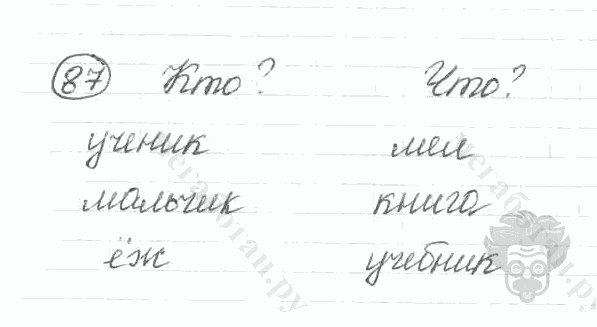 87 Кто? Что?
ученик мел
мальчик книга
ёж учебник
Мегаботан.ру
Мегаботан.ру